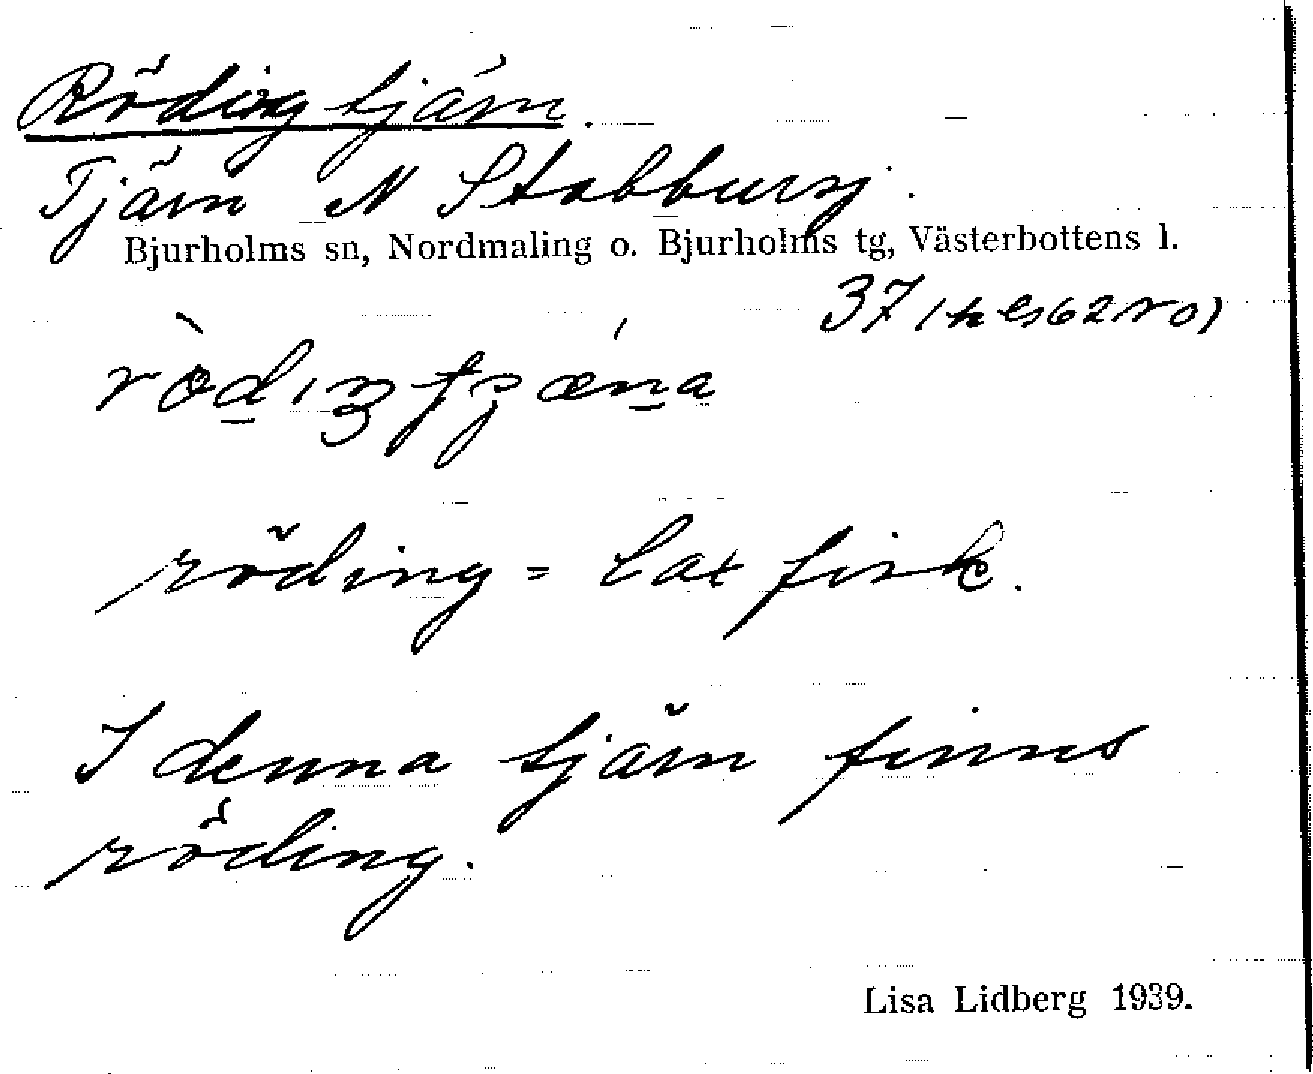 Rödingtjärn.
Tjärn N Stabbursj.
Bjurholms sn, Nordmaling o. Bjurholms tg, Västerbottens l.
37
röding = laxfisk.
I denna tjärn finns
röding.
Lisa Lidberg 1939.